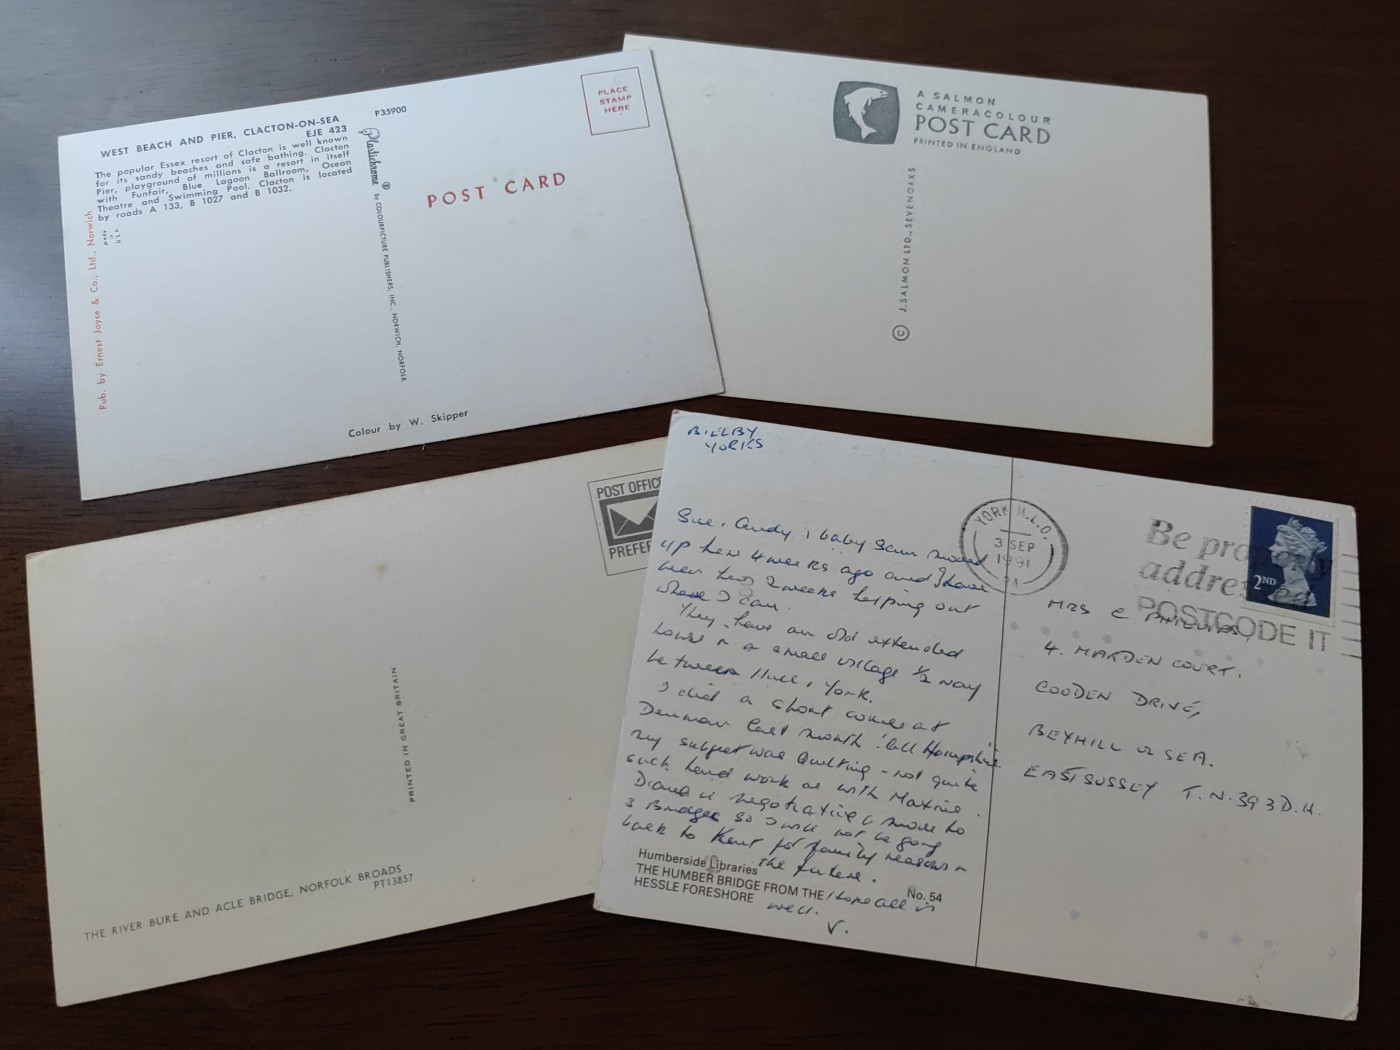 WEST BEACH AND PIER, CLACTON-ON-SEA
EJE 423
The popular Essex resort of Clacton is well known
for its sandy beaches and safe bathing. Clacton
Pier, playground of millions is a resort in itself
with Funfair, Blue Lagoon Ballroom, Ocean
Theatre and Swimming Pool. Clacton is located
by roads A 133, B 1027 and B 1032.
MADE
IN
U.S.A.
Pub. by Ernest Joyce & Co., Ltd., Norwich
P35900
Plastichrome ® by COLOURPICTURE PUBLISHERS, INC. NORWICH, NORFOLK
PLACE
STAMP
HERE
POST CARD
Colour by W. Skipper
A SALMON
CAMERACOLOUR
POST CARD
PRINTED IN ENGLAND
© J. SALMON LTD., SEVENOAKS
POST OFFIC
PREFER
PRINTED IN GREAT BRITAIN
THE RIVER BURE AND ACLE BRIDGE, NORFOLK BROADS
PT13857
YORKS
Sue, Andy, baby Sam moved
up here 4 weeks ago and I have
been here 2 weeks helping out
where I can.
They have an old extended
house in a small village ½ way
between Hull, York.
I did a short course at
Denman last month
my subject was Quilting - not quite
such hand work as with Maxine.
Diana is negotiating a move to
3 Bridges so I will not be going
back to Kent for family reasons in
the future.
I hope all is
well.
V.
Humberside Libraries
THE HUMBER BRIDGE FROM THE
HESSLE FORESHORE
No. 54
YORK M.L.O.
3 SEP
1991
Be properly
addressed
POSTCODE IT
2ND
MRS C PHILLIPS,
4. MARDEN COURT.
COODEN DRIVE,
BEXHILL on SEA.
EAST SUSSEX T.N.39 3D.H.